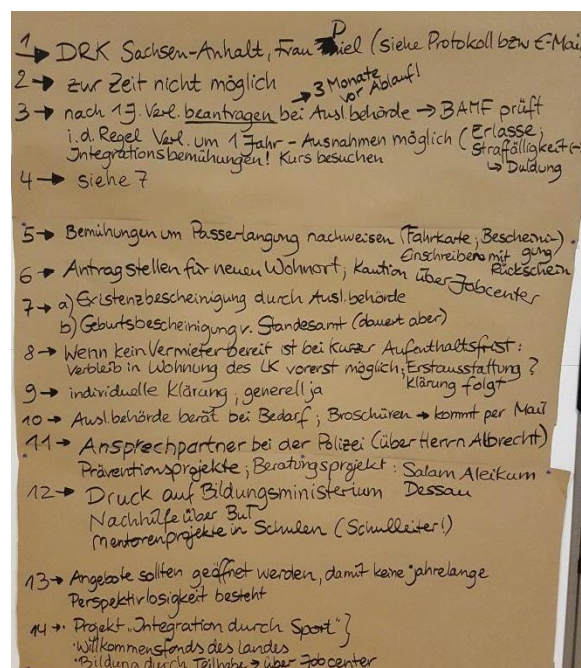 1 → DRK Sachsen-Anhalt, Frau Piel (siehe Protokoll bzw E-Mai
2 → zur Zeit nicht möglich
→ 3 Monate vor Ablauf!
3 → nach 1 J. Verl. beantragen bei Ausl.behörde → BAMF prüft
i.d. Regel Verl. um 1 Jahr - Ausnahmen möglich (Erlasse;
Integrationsbemühungen! Kurs besuchen Straffälligkeit (-)
↳ Duldung
4 → siehe 7
5 → Bemühungen um Passerlangung nachweisen (Fahrkarte; Bescheini-
gung/ Einschreiben mit Rückschein
6 → Antrag stellen für neuen Wohnort; Kaution über Jobcenter
7 → a) Existenzbescheinigung durch Ausl.behörde
b) Geburtsbescheinigung v. Standesamt (dauert aber)
8 → Wenn kein Vermieter bereit ist bei kurzer Aufenthaltsfrist:
Verbleib in Wohnung des LK vorerst möglich; Erstausstattung?
Klärung folgt
9 → individuelle Klärung, generell ja
10 → Ausl.behörde berät bei Bedarf; Broschüren → kommt per Mail
11 → Ansprechpartner bei der Polizei (über Herrn Albrecht)
Präventionsprojekte; Beratungsprojekt: Salam Aleikum
Dessau
12 → Druck auf Bildungsministerium
Nachhilfe über BuT
Mentorenprojekte in Schulen (Schulleiter!)
13 → Angebote sollten geöffnet werden, damit keine jahrelange
Perspektivlosigkeit besteht
14 → · Projekt „Integration durch Sport" }
· Willkommensfonds des Landes
· Bildung durch Teilhabe → über Jobcenter